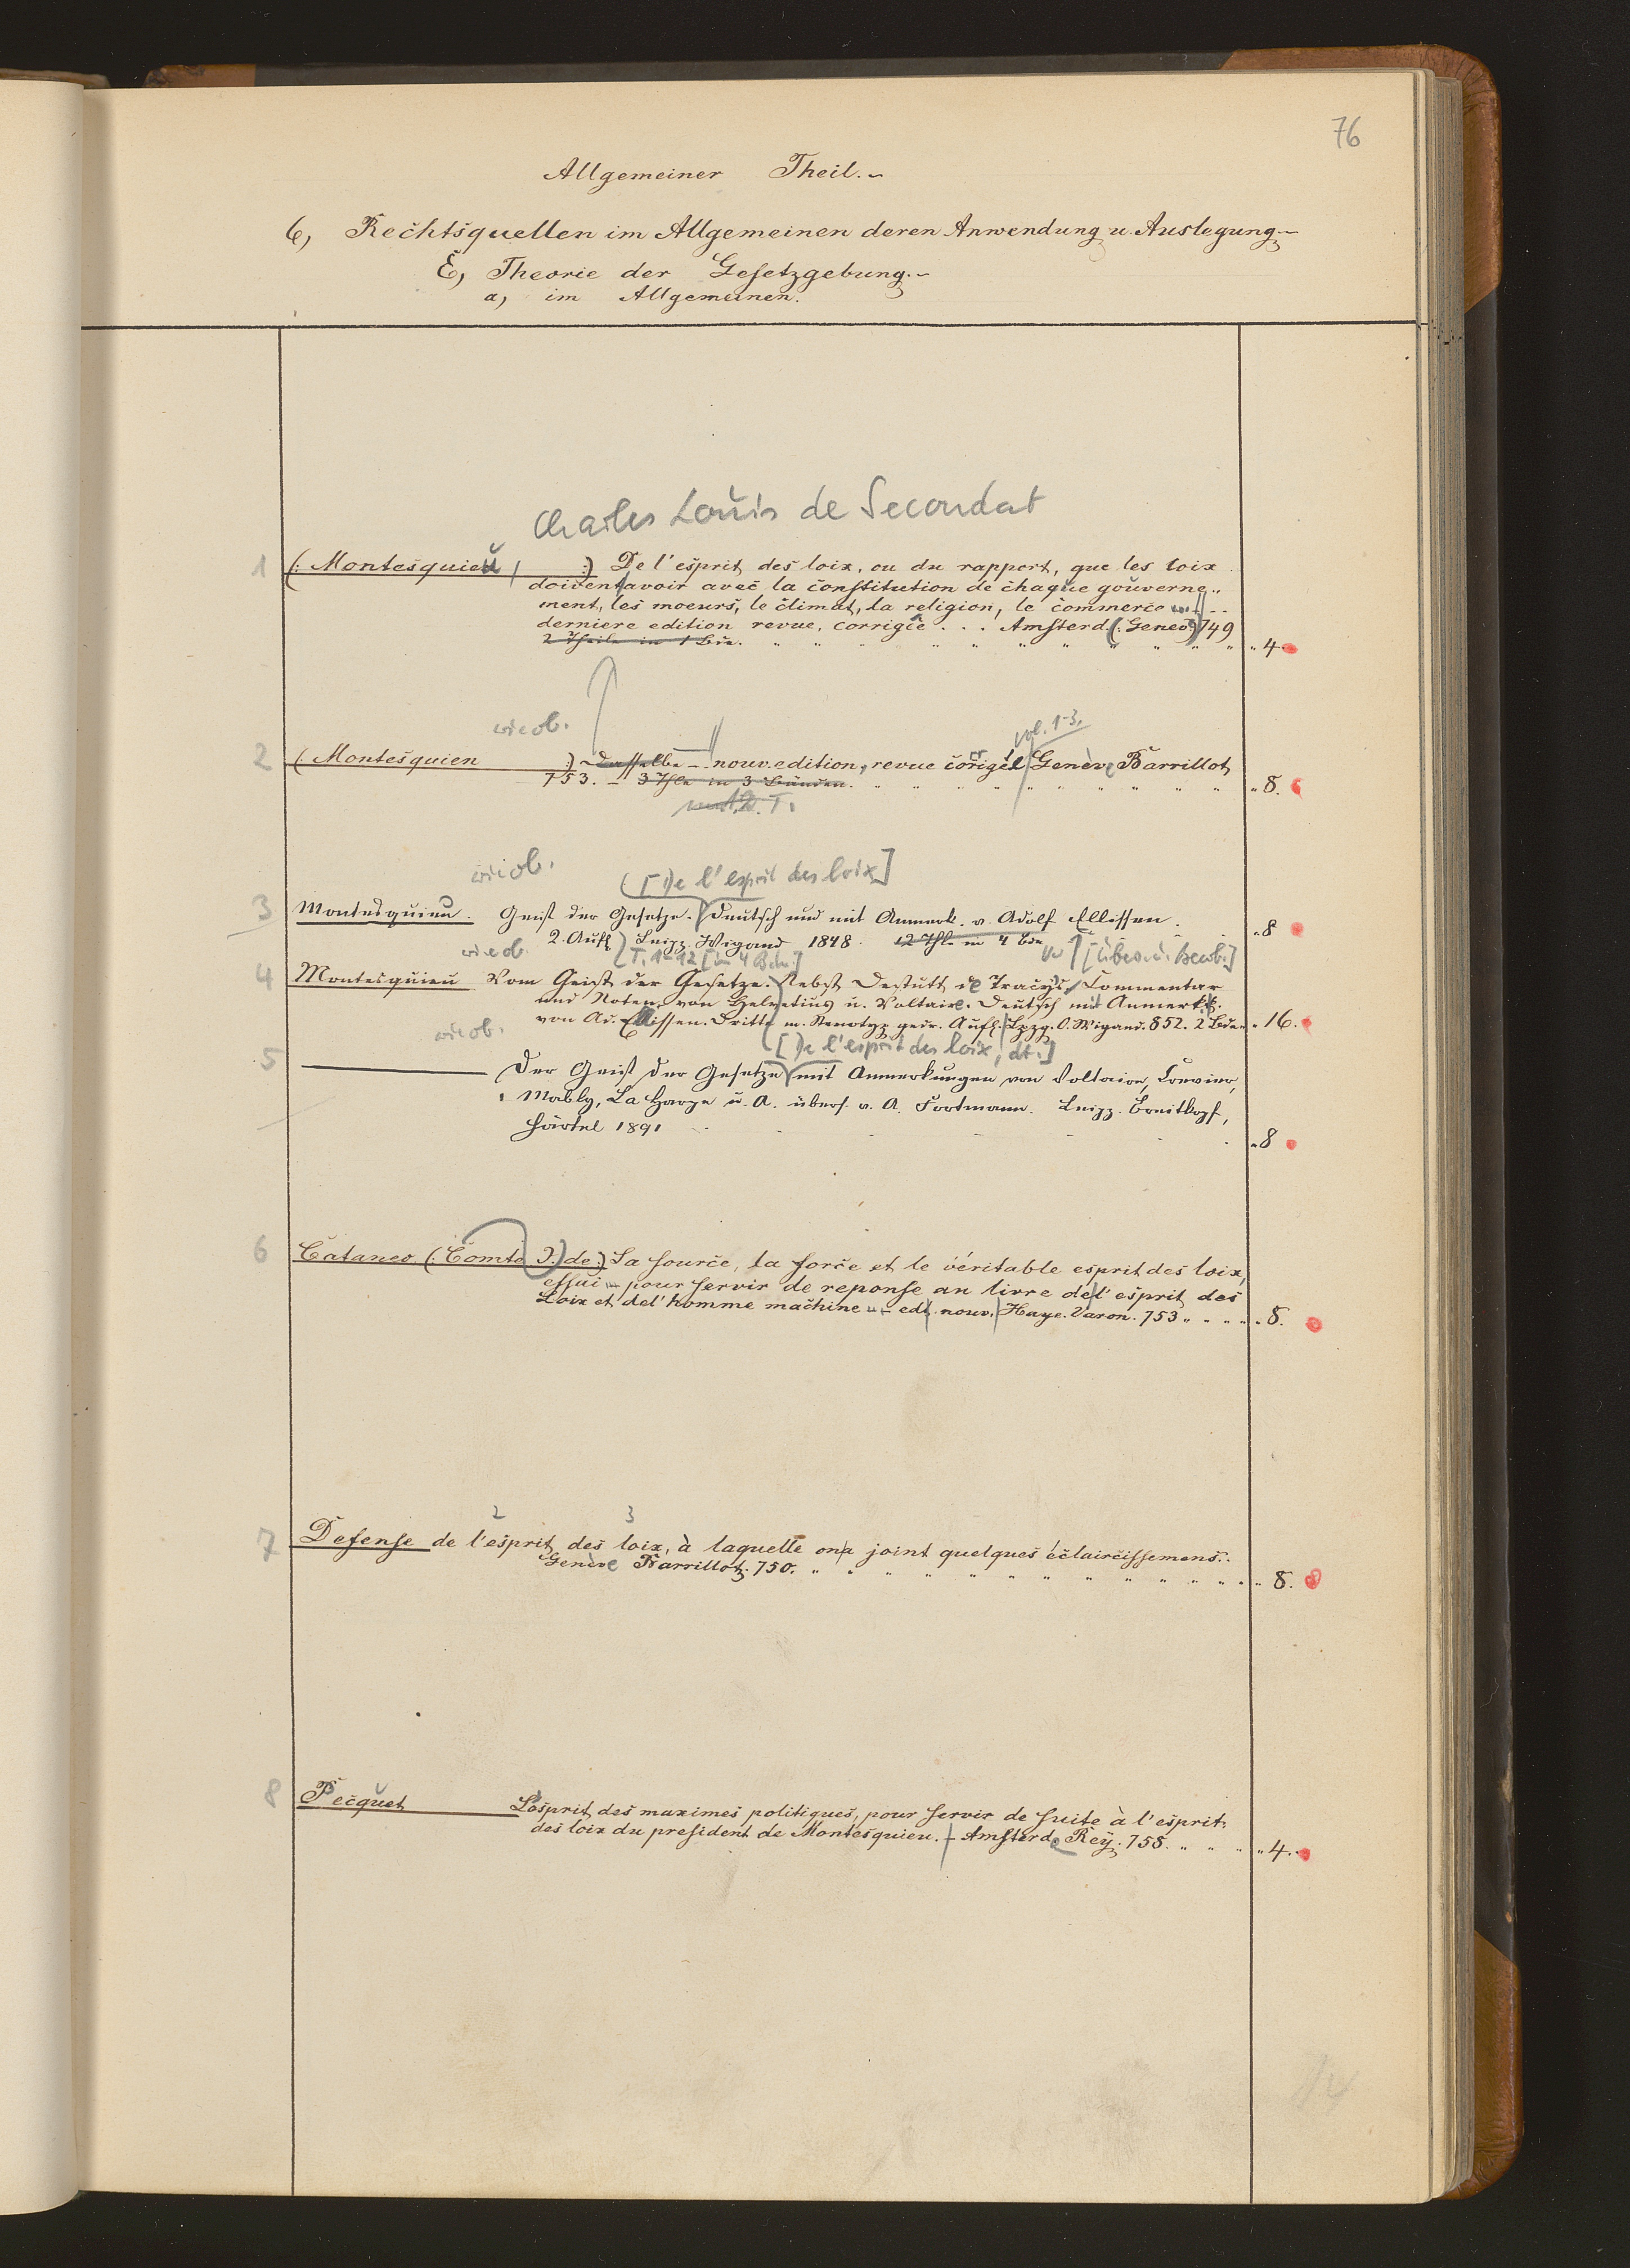 76
Allgemeiner Theil.
6, Rechtsquellen im Allgemeinen deren Anwendung u. Auslegung
E, Theorie der Gesetzgebung.
a, im Allgemeinen.
Charles Louis de Secondat
1 (: Montesquieu, :) De l'esprit des loix, ou du rapport, que les loix
doivent avoir avec la constitution de chaque gouverne..
ment, les moeurs, le climat, la religion, le commerce
derniere edition revue, corrigée ... Amsterd. (: Geneve) 749
2 Theile in 1 Bde. " 4.
wie ob. vol. 1-3.
2 (: Montesquieu :) Dasselbe - nouv. edition, revue corrigée Genève Barrillot,
753. - 3 Thle in 3 Bänden. " 8.
wie ob. [De l'esprit des loix]
3 Montesquieu. Geist der Gesetze. Deutsch und mit Anmerk. v. Adolf Ellissen.
2. Aufl. Leipz. Wigand 1848. 12 Thle in 4 Bde " 8
wie ob. T. 1-12 [in 4 Bdn.]
4 Montesquieu Vom Geist der Gesetze. Nebst Destutt de Tracys Commentar
und Noten von Helvetius u. Voltaire. Deutsch mit Anmerk.
von Ad. Ellissen. Dritte m. Stereotyp gedr. Aufl. Lpzg. O. Wigand. 852. 2 Bde. " 16.
wie ob. [De l'esprit des loix, dt.]
5 Der Geist der Gesetze mit Anmerkungen von Voltaire, Crevier,
Mably, La Harpe u. A. übers. v. A. Fortmann. Leipz. Breitkopf,
Härtel 1891 " 8
6 Cataneo (: Comte J. de :) La source, la force et le véritable esprit des loix,
essai - pour servir de reponse au livre de l'esprit des
Loix et de l'homme machine - edt. nouv. Haye. Varon. 753 " 8.
2 3
7 Defense de l'esprit des loix, à laquelle on a joint quelques éclaircissemens.
Genève Barrillot. 750. " 8.
8 Pecquet L'esprit des maximes politiques, pour servir de suite à l'esprit
des loix du president de Montesquieu. - Amsterd. Rey. 758. " 4.